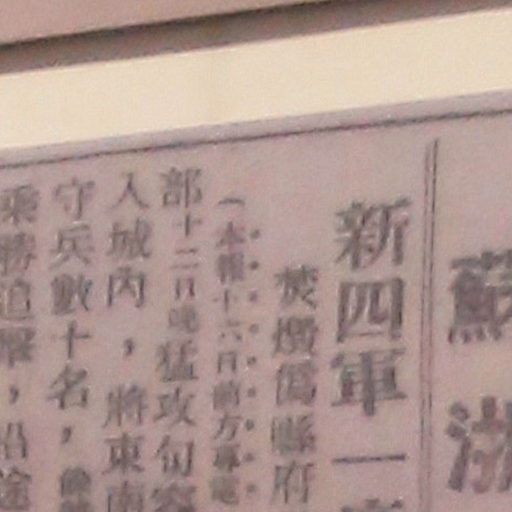 蘇浙
新四軍一
焚燬僞縣府
（本報十六日前方專電
部十二日晚猛攻句容
入城內，將東南
守兵數十名，
乘勝追擊，沿途